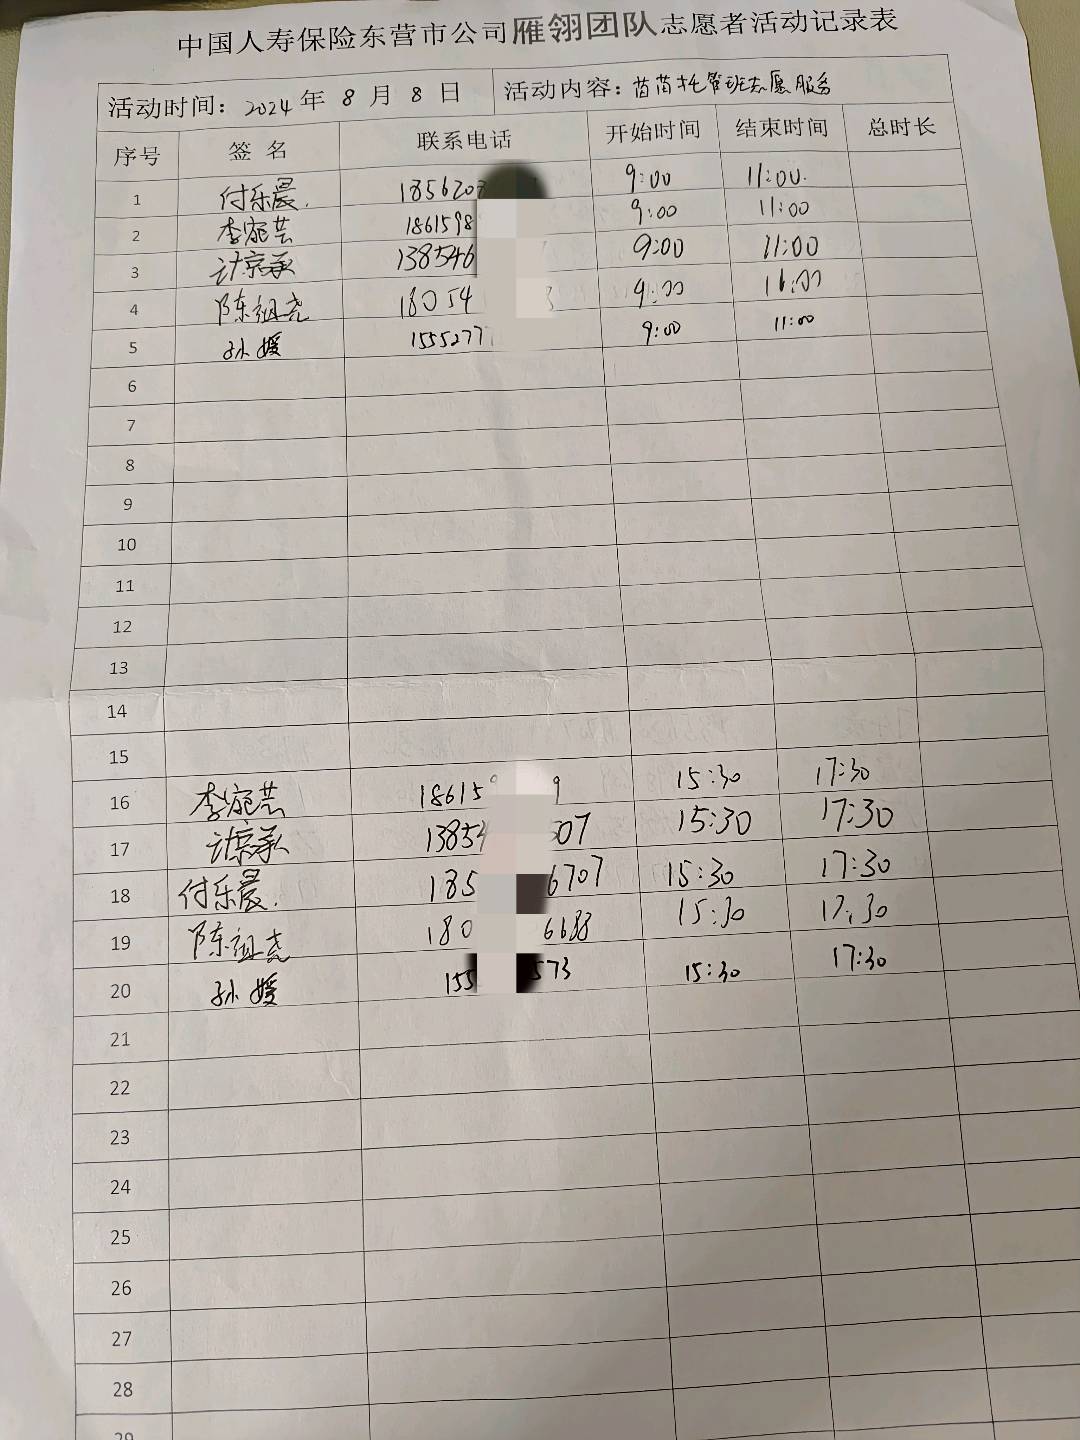 中国人寿保险东营市公司雁翎团队志愿者活动记录表
活动时间：2024年 8 月 8 日 活动内容：茵茵托管班志愿服务
序号 签 名 联系电话 开始时间 结束时间 总时长
1 付乐晨. 185620 9:00 11:00.
2 李宛芸 1861598 9:00 11:00
3 计京承 138546 9:00 11:00
4 陈祖尧 18054 9:00 11:00
5 孙媛 155277 9:00 11:00
6
7
8
9
10
11
12
13
14
15
16 李宛芸 18615 9 15:30 17:30
17 计京承 1385 507 15:30 17:30
18 付乐晨. 185 6707 15:30 17:30
19 陈祖尧 180 6688 15:30 17:30
20 孙媛 155 573 15:30 17:30
21
22
23
24
25
26
27
28
29